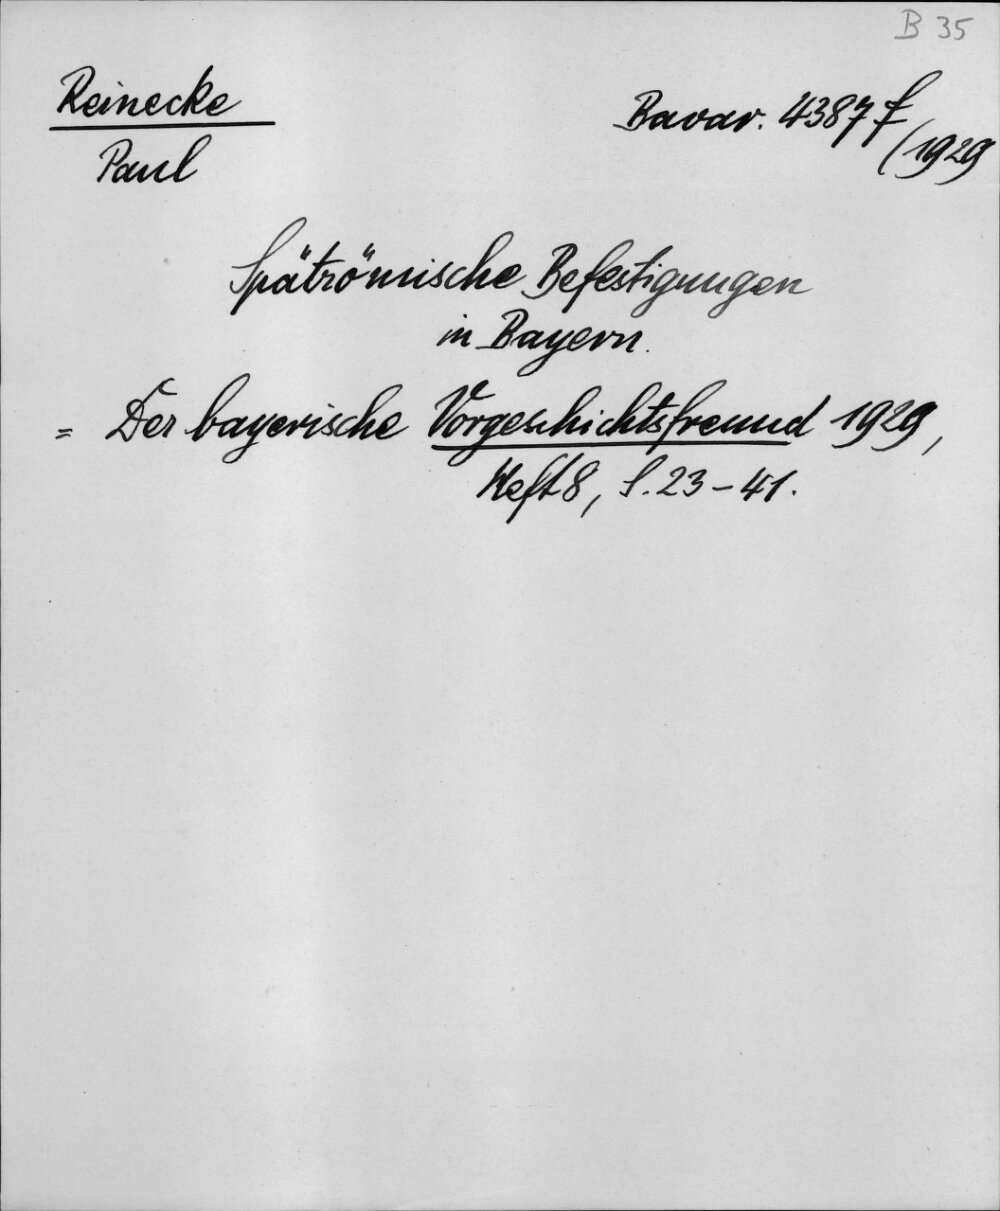 B 35
Reinecke
Paul
Bavar. 4387 f
(1929
Spätrömische Befestigungen
in Bayern.
= Der bayerische Vorgeschichtsfreund 1929,
Heft 8, S. 23-41.